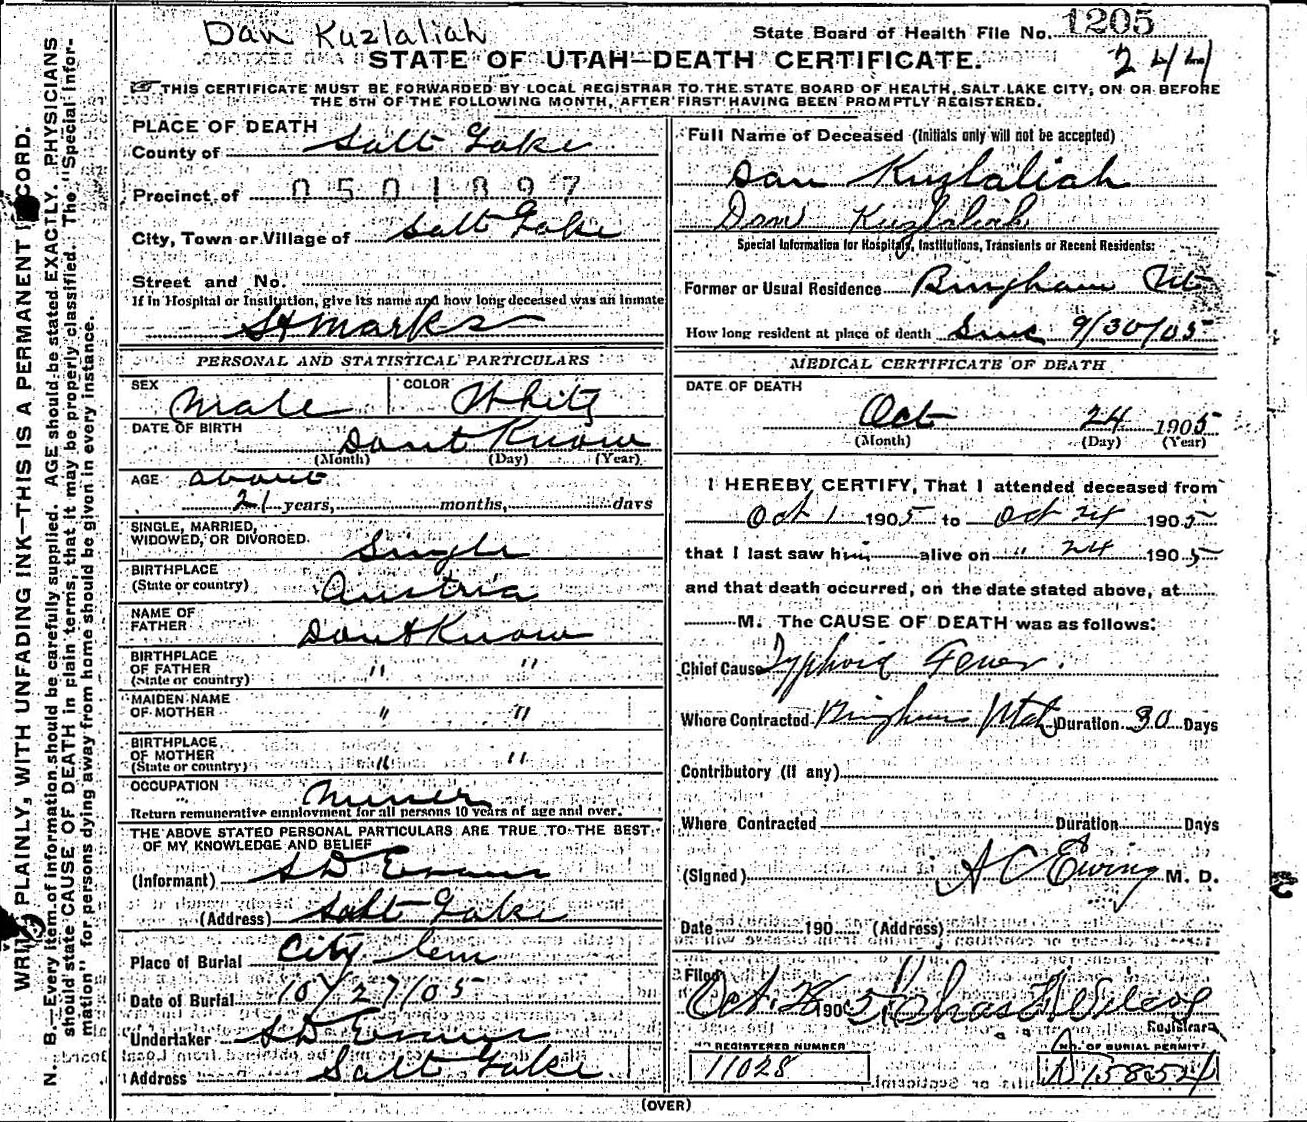 Dan Kuzlaliah
State Board of Health File No. 1205
244
STATE OF UTAH—DEATH CERTIFICATE.
THIS CERTIFICATE MUST BE FORWARDED BY LOCAL REGISTRAR TO THE STATE BOARD OF HEALTH, SALT LAKE CITY, ON OR BEFORE
THE 5TH OF THE FOLLOWING MONTH, AFTER FIRST HAVING BEEN PROMPTLY REGISTERED.
WRITE PLAINLY, WITH UNFADING INK—THIS IS A PERMANENT RECORD.
N. B.—Every item of information should be carefully supplied. AGE should be stated EXACTLY. PHYSICIANS
should state CAUSE OF DEATH in plain terms, that it may be properly classified. The "Special Infor-
mation" for persons dying away from home should be given in every instance.
PLACE OF DEATH
County of Salt Lake
Precinct of 0501897
City, Town or Village of Salt Lake
Street and No.
If in Hospital or Institution, give its name and how long deceased was an inmate
St Marks
PERSONAL AND STATISTICAL PARTICULARS
SEX Male COLOR White
DATE OF BIRTH Dont Know
(Month) (Day) (Year)
AGE about
21 years, months, days
SINGLE, MARRIED,
WIDOWED, OR DIVORCED. Single
BIRTHPLACE
(State or country) Austria
NAME OF
FATHER Dont Know
BIRTHPLACE
OF FATHER
(State or country) " "
MAIDEN NAME
OF MOTHER " "
BIRTHPLACE
OF MOTHER
(State or country) " "
OCCUPATION Miner
Return remunerative employment for all persons 10 years of age and over.
THE ABOVE STATED PERSONAL PARTICULARS ARE TRUE TO THE BEST
OF MY KNOWLEDGE AND BELIEF
(Informant) S D Evans
(Address) Salt Lake
Place of Burial City Cem
Date of Burial 10/27/05
Undertaker S D Evans
Address Salt Lake
Full Name of Deceased (Initials only will not be accepted)
Dan Kuzlaliah
Dan Kuzlaliah
Special Information for Hospitals, Institutions, Transients or Recent Residents:
Former or Usual Residence Bingham Ut
How long resident at place of death Since 9/30/05
MEDICAL CERTIFICATE OF DEATH
DATE OF DEATH
Oct 24 1905
(Month) (Day) (Year)
I HEREBY CERTIFY, That I attended deceased from
Oct 1 1905 to Oct 24 1905
that I last saw him alive on " 24 1905
and that death occurred, on the date stated above, at
M. The CAUSE OF DEATH was as follows:
Chief Cause Typhoid Fever.
Where Contracted Bingham Utah Duration 30 Days
Contributory (If any)
Where Contracted Duration Days
(Signed) A C Ewing M. D.
Date 190 (Address)
Filed
Oct. 28 1905
Registrar
REGISTERED NUMBER NO. OF BURIAL PERMIT
11028
(OVER)